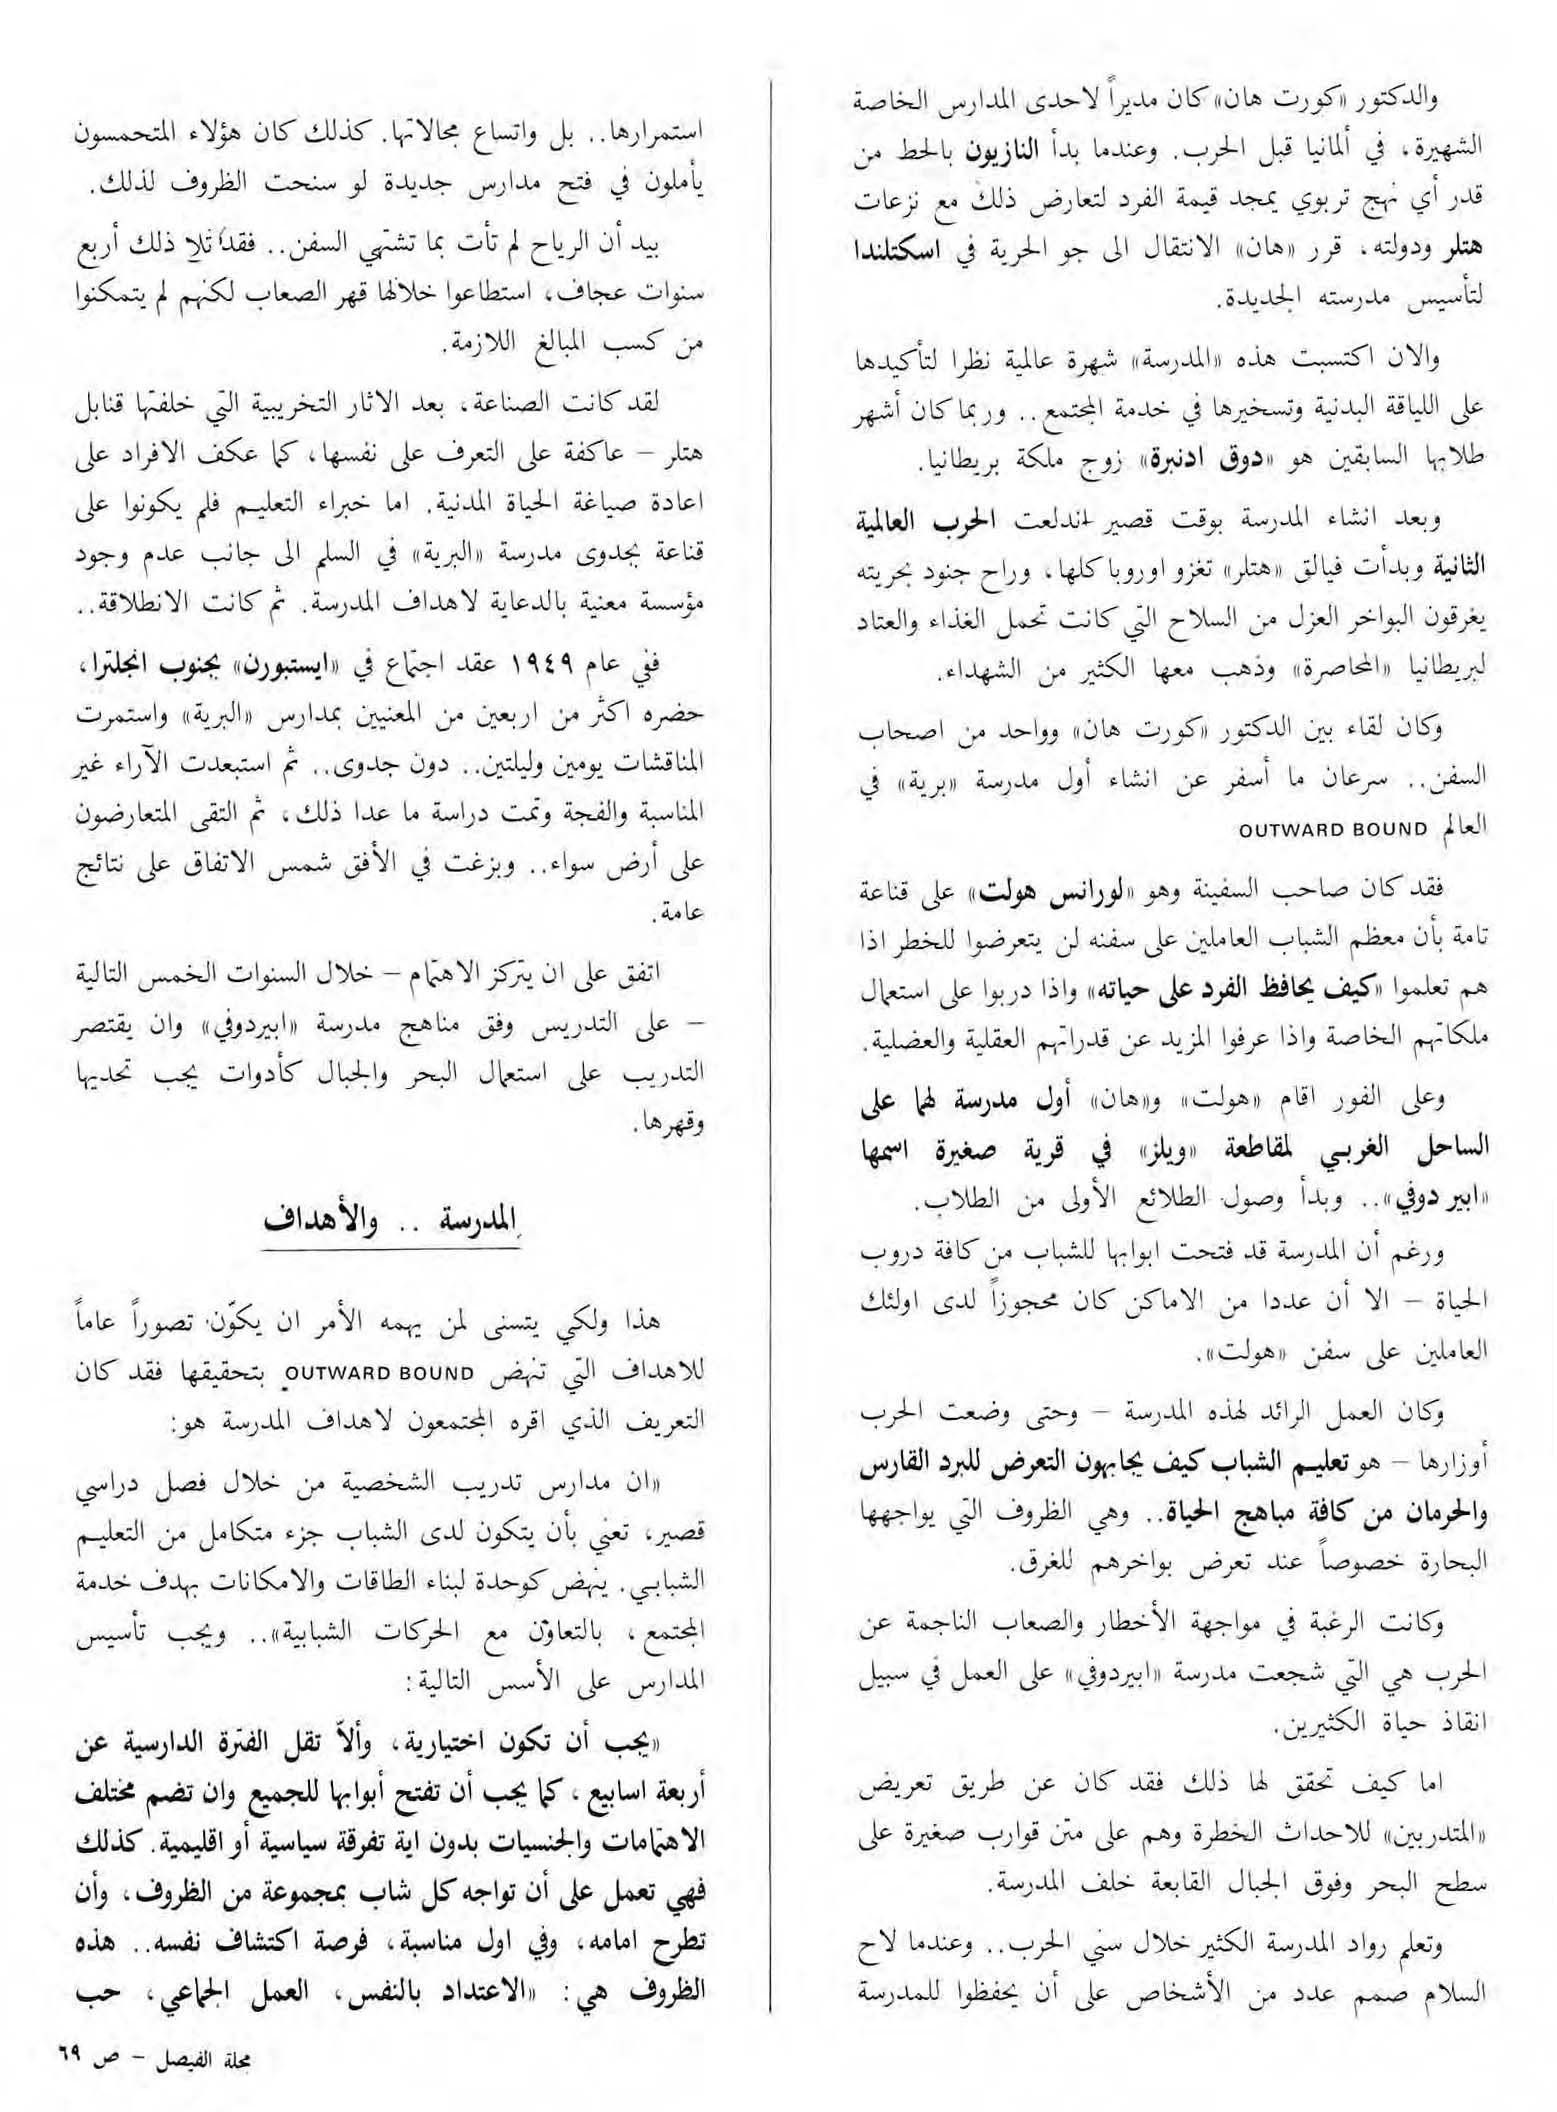 والدكتور «كورت هان» كان مديراً لاحدى المدارس الخاصة
الشهيرة، في ألمانيا قبل الحرب. وعندما بدأ النازيون بالحط من
قدر أي نهج تربوي يمجد قيمة الفرد لتعارض ذلك مع نزعات
هتلر ودولته، قرر «هان» الانتقال الى جو الحرية في اسكتلندا
لتأسيس مدرسته الجديدة.
والان اكتسبت هذه «المدرسة» شهرة عالمية نظرا لتأكيدها
على اللياقة البدنية وتسخيرها في خدمة المجتمع.. وربما كان أشهر
طلابها السابقين هو «دوق ادنبرة» زوج ملكة بريطانيا.
وبعد انشاء المدرسة بوقت قصير اندلعت الحرب العالمية
الثانية وبدأت فيالق «هتلر» تغزو اوروبا كلها، وراح جنود بحريته
يغرقون البواخر العزل من السلاح التي كانت تحمل الغذاء والعتاد
لبريطانيا «المحاصرة» وذهب معها الكثير من الشهداء.
وكان لقاء بين الدكتور «كورت هان» وواحد من اصحاب
السفن.. سرعان ما أسفر عن انشاء أول مدرسة «برية» في
العالم OUTWARD BOUND
فقد كان صاحب السفينة وهو «لورانس هولت» على قناعة
تامة بأن معظم الشباب العاملين على سفنه لن يتعرضوا للخطر اذا
هم تعلموا «كيف يحافظ الفرد على حياته» واذا دربوا على استعمال
ملكاتهم الخاصة واذا عرفوا المزيد عن قدراتهم العقلية والعضلية.
وعلى الفور اقام «هولت» و«هان» أول مدرسة لهما على
الساحل الغربي لمقاطعة «ويلز» في قرية صغيرة اسمها
«ابير دوفي».. وبدأ وصول الطلائع الأولى من الطلاب.
ورغم أن المدرسة قد فتحت ابوابها للشباب من كافة دروب
الحياة – الا أن عددا من الاماكن كان محجوزاً لدى اولئك
العاملين على سفن «هولت».
وكان العمل الرائد لهذه المدرسة – وحتى وضعت الحرب
أوزارها – هو تعليم الشباب كيف يجابهون التعرض للبرد القارس
والحرمان من كافة مباهج الحياة.. وهي الظروف التي يواجهها
البحارة خصوصاً عند تعرض بواخرهم للغرق.
وكانت الرغبة في مواجهة الأخطار والصعاب الناجمة عن
الحرب هي التي شجعت مدرسة «ابيردوفي» على العمل في سبيل
انقاذ حياة الكثيرين.
اما كيف تحقق لها ذلك فقد كان عن طريق تعريض
«المتدربين» للاحداث الخطرة وهم على متن قوارب صغيرة على
سطح البحر وفوق الجبال القابعة خلف المدرسة.
وتعلم رواد المدرسة الكثير خلال سني الحرب.. وعندما لاح
السلام صمم عدد من الأشخاص على أن يحفظوا للمدرسة
استمرارها.. بل واتساع مجالاتها. كذلك كان هؤلاء المتحمسون
يأملون في فتح مدارس جديدة لو سنحت الظروف لذلك.
بيد أن الرياح لم تأت بما تشتهي السفن.. فقد تلا ذلك أربع
سنوات عجاف، استطاعوا خلالها قهر الصعاب لكنهم لم يتمكنوا
من كسب المبالغ اللازمة.
لقد كانت الصناعة، بعد الاثار التخريبية التي خلفتها قنابل
هتلر – عاكفة على التعرف على نفسها، كما عكف الافراد على
اعادة صياغة الحياة المدنية. اما خبراء التعليم فلم يكونوا على
قناعة بجدوى مدرسة «البرية» في السلم الى جانب عدم وجود
مؤسسة معنية بالدعاية لاهداف المدرسة. ثم كانت الانطلاقة..
ففي عام ١٩٤٩ عقد اجتماع في «ايستبورن» بجنوب انجلترا،
حضره اكثر من اربعين من المعنيين بمدارس «البرية» واستمرت
المناقشات يومين وليلتين.. دون جدوى.. ثم استبعدت الآراء غير
المناسبة والفجة وتمت دراسة ما عدا ذلك، ثم التقى المتعارضون
على أرض سواء.. وبزغت في الأفق شمس الاتفاق على نتائج
عامة.
اتفق على ان يتركز الاهتمام – خلال السنوات الخمس التالية
– على التدريس وفق مناهج مدرسة «ابيردوفي» وان يقتصر
التدريب على استعمال البحر والجبال كأدوات يجب تحديها
وقهرها.
المدرسة .. والأهداف
هذا ولكي يتسنى لمن يهمه الأمر ان يكوّن تصوراً عاماً
للاهداف التي تنهض OUTWARD BOUND بتحقيقها فقد كان
التعريف الذي اقره المجتمعون لاهداف المدرسة هو:
«ان مدارس تدريب الشخصية من خلال فصل دراسي
قصير، تعني بأن يتكون لدى الشباب جزء متكامل من التعليم
الشبابي. ينهض كوحدة لبناء الطاقات والامكانات بهدف خدمة
المجتمع، بالتعاون مع الحركات الشبابية».. ويجب تأسيس
المدارس على الأسس التالية:
«يجب أن تكون اختيارية، وألاّ تقل الفترة الدارسية عن
أربعة اسابيع، كما يجب أن تفتح أبوابها للجميع وان تضم مختلف
الاهتمامات والجنسيات بدون اية تفرقة سياسية أو اقليمية. كذلك
فهي تعمل على أن تواجه كل شاب بمجموعة من الظروف، وأن
تطرح امامه، وفي اول مناسبة، فرصة اكتشاف نفسه.. هذه
الظروف هي: «الاعتداد بالنفس، العمل الجماعي، حب
مجلة الفيصل – ص ٦٩